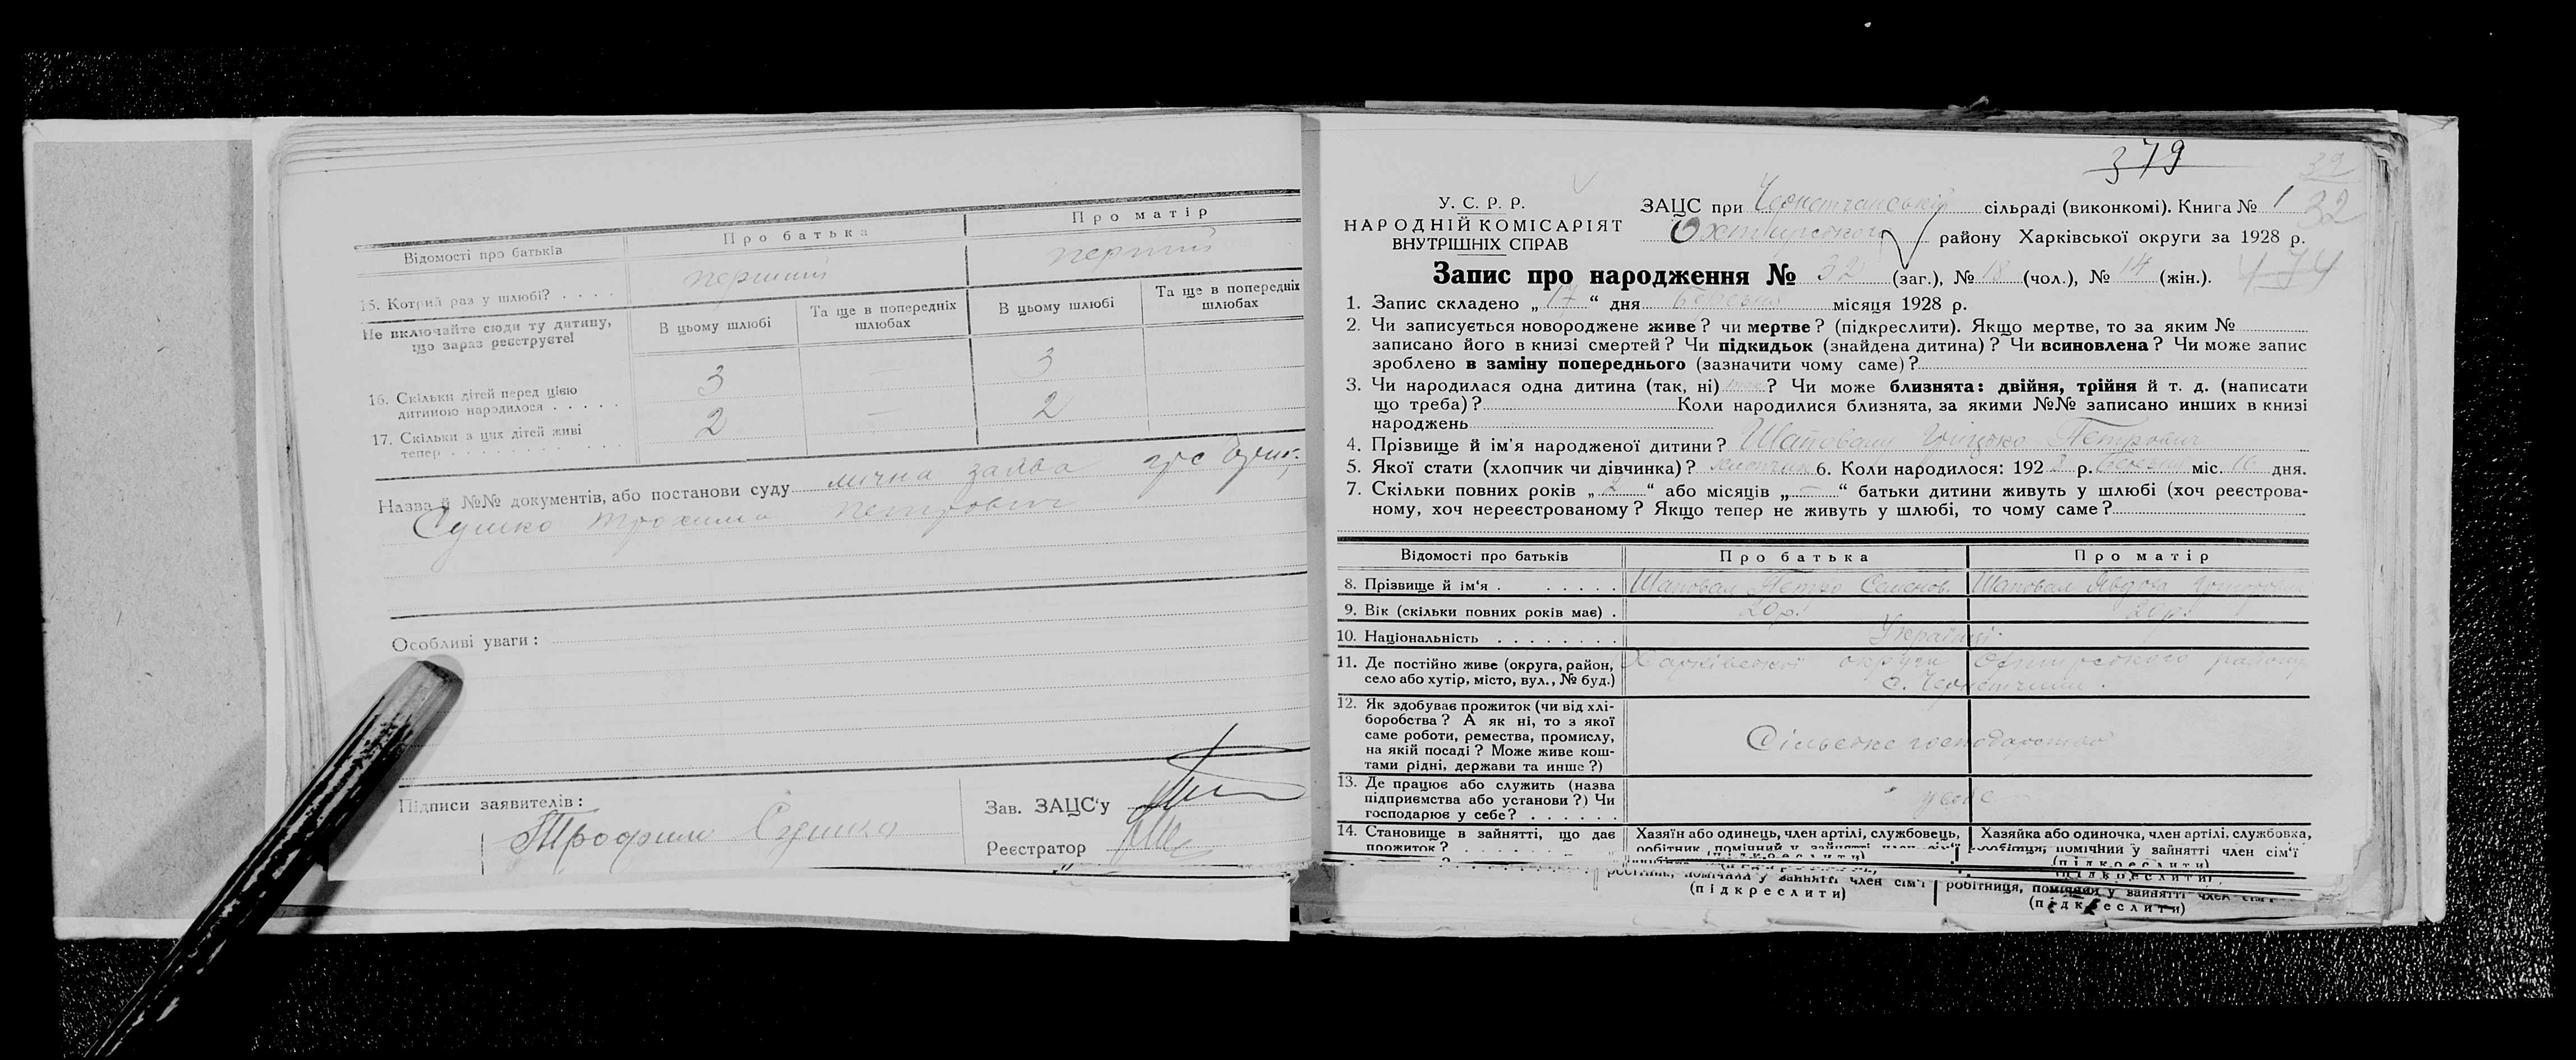 Відомості про батьків
Про батька
Про матір
15. Котрий раз у шлюбі? . . . .
перший
перший
Не включайте сюди ту дитину,
що зараз реєструєте!
В цьому шлюбі
Та ще в попередніх
шлюбах
В цьому шлюбі
Та ще в попередніх
шлюбах
16. Скільки дітей перед цією
дитиною народилося . . . . .
3
3
17. Скільки з цих дітей живі
тепер . . . . . . . . .
2
—
2
Назва й №№ документів, або постанови суду лична заява
Сушко Трохима Петрович
Особливі уваги:
Підписи заявителів:
Трофим Сушко
Зав. ЗАЦС'у
Реєстратор
379
32
У. С. Р. Р.
НАРОДНІЙ КОМІСАРІЯТ
ВНУТРІШНІХ СПРАВ
ЗАЦС при сільраді (виконкомі). Книга № 1
Охтирського району Харківської округи за 1928 р.
Запис про народження № 32 (заг.), № 18 (чол.), № 14 (жін.).
474
1. Запис складено „17“ дня березня місяця 1928 р.
2. Чи записується новороджене живе? чи мертве? (підкреслити). Якщо мертве, то за яким №
записано його в книзі смертей? Чи підкидьок (знайдена дитина)? Чи всиновлена? Чи може запис
зроблено в заміну попереднього (зазначити чому саме)?
3. Чи народилася одна дитина (так, ні) так? Чи може близнята: двійня, трійня й т. д. (написати
що треба)? Коли народилися близнята, за якими №№ записано инших в книзі
народжень
4. Прізвище й ім'я народженої дитини? Шаповал Грицько Петрович
5. Якої стати (хлопчик чи дівчинка)? хлопчик 6. Коли народилося: 1928 р. березня міс. 16 дня.
7. Скільки повних років „2“ або місяців „—“ батьки дитини живуть у шлюбі (хоч реєстрова-
ному, хоч нереєстрованому? Якщо тепер не живуть у шлюбі, то чому саме?
Відомості про батьків
Про батька
Про матір
8. Прізвище й ім'я . . . . . .
Шаповал Петро Семенов.
Шаповал Явдоха
9. Вік (скільки повних років має) .
20 р.
20 р.
10. Національність . . . . . . . .
Українці
11. Де постійно живе (округа, район,
село або хутір, місто, вул., № буд.)
Харківської округи Охтирського району
с. Чернетчина.
12. Як здобуває прожиток (чи від хлі-
боробства? А як ні, то з якої
саме роботи, ремества, промислу,
на якій посаді? Може живе кош-
тами рідні, держави та инше?)
Сільське господарство
13. Де працює або служить (назва
підприємства або установи?) Чи
господарює у себе? . . . . . .
у себе
14. Становище в зайнятті, що дає
прожиток? . . . . . .
Хазяїн або одинець, член артілі, службовець,
робітник, помічний у зайнятті член сім'ї
(підкреслити)
Хазяйка або одиночка, член артілі, службовка,
робітниця, помічний у зайнятті член сім'ї
(підкреслити)
робітник, помічний у зайнятті член сім'ї
(підкреслити)
робітниця, помічний у зайнятті член сім'ї
(підкреслити)